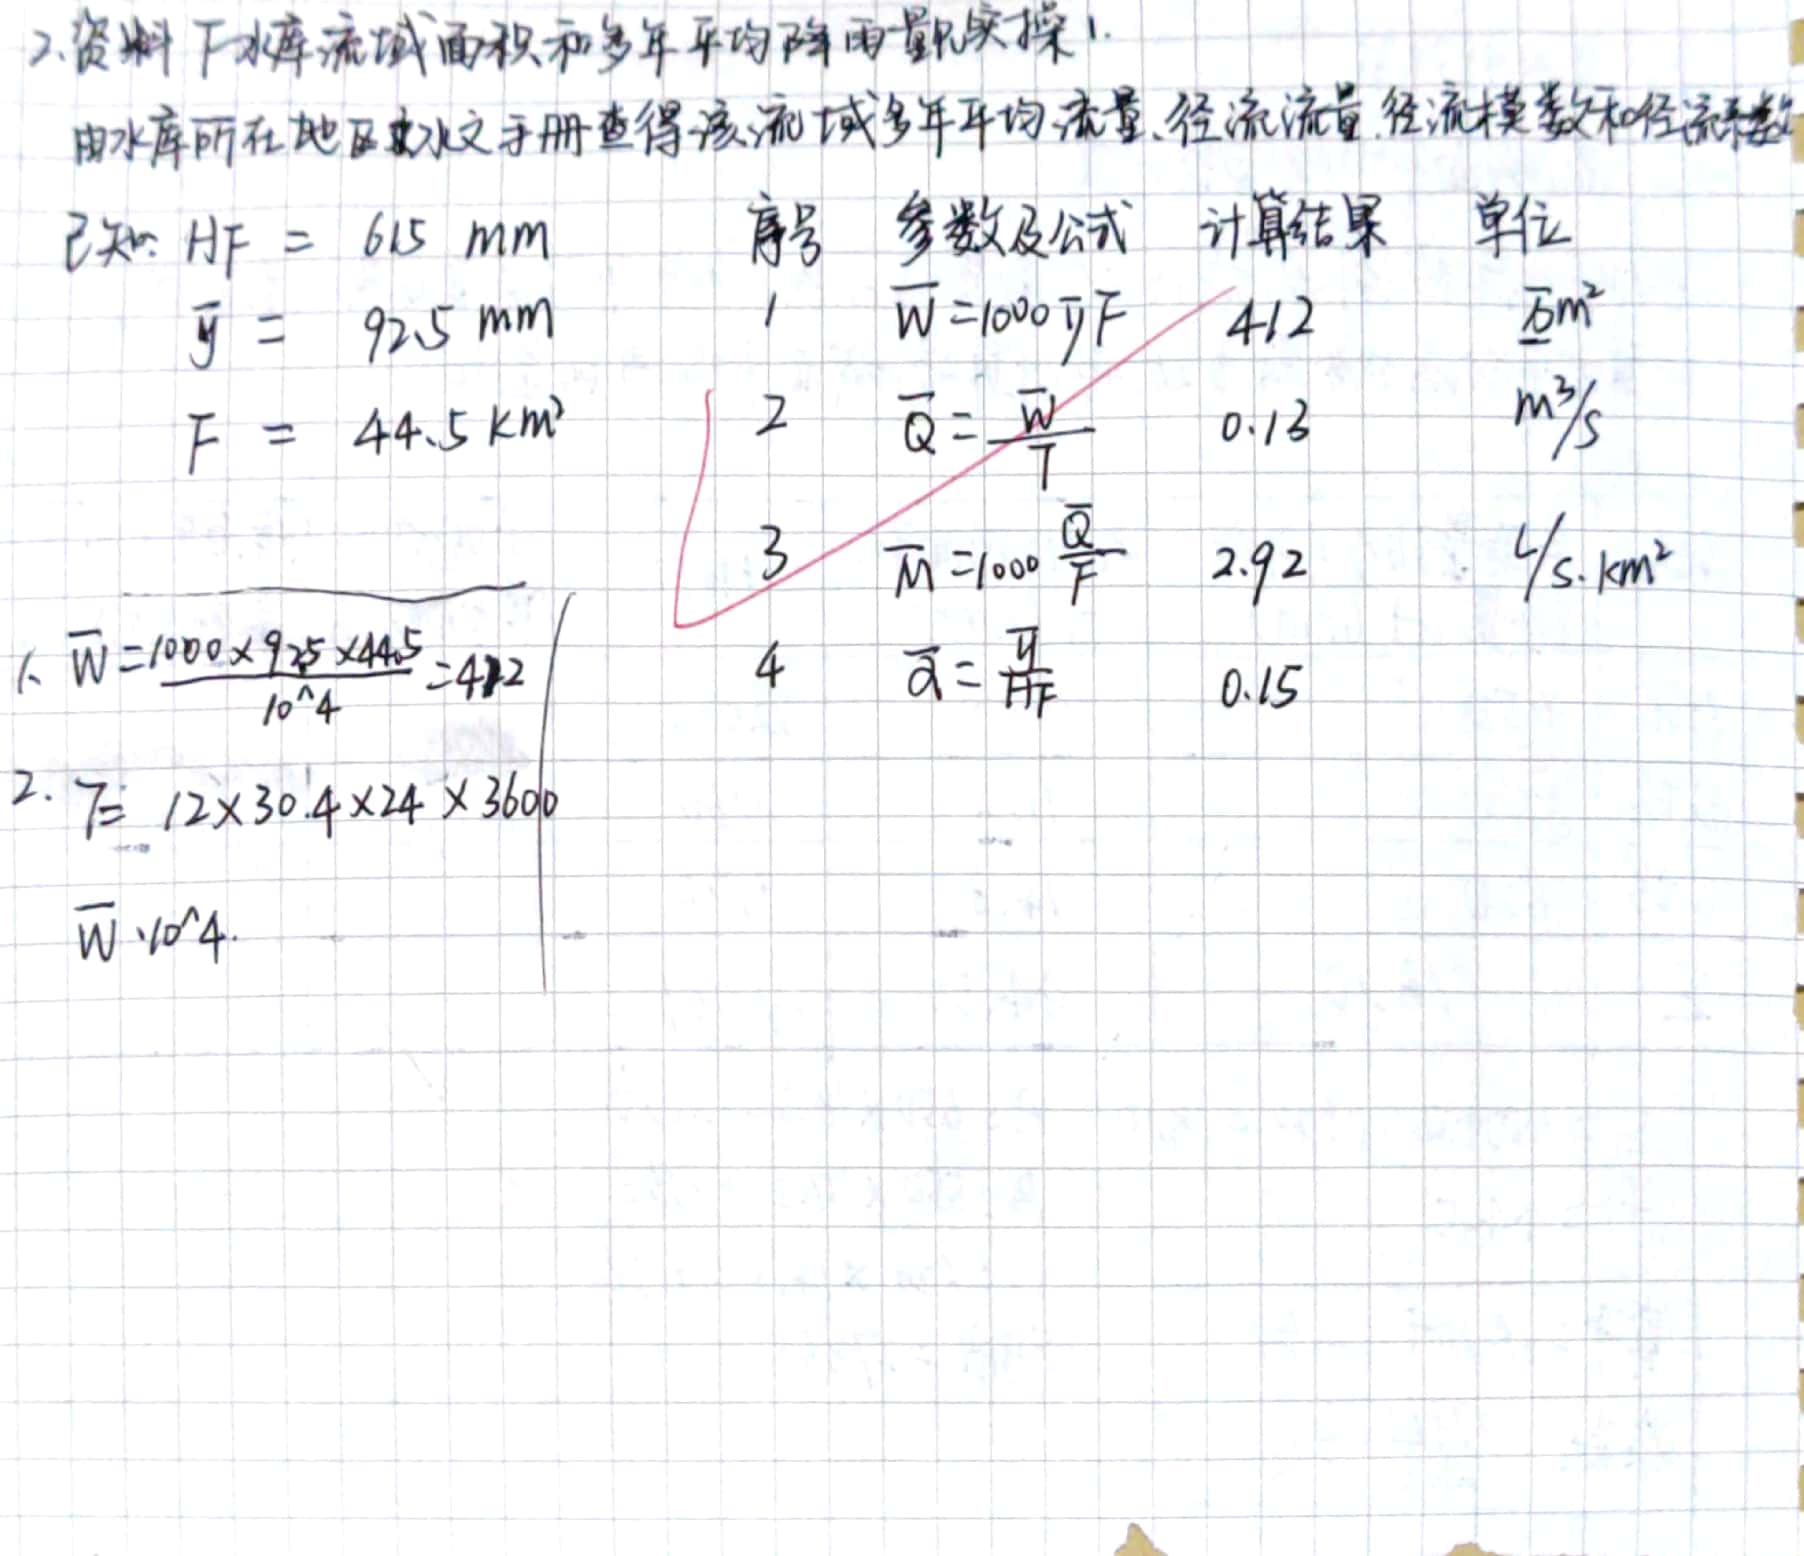 2.资料 下水库流域面积和多年平均降雨量见实操1.
由水库所在地区水文手册查得该流域多年平均流量、径流流量、径流模数和径流系数
已知: HF = 615 mm
ȳ = 92.5 mm
F = 44.5 km²
序号 参数及公式 计算结果 单位
1 W̄=1000ȳF 412 万m²
2 Q̄=W̄/T 0.13 m³/s
3 M̄=1000 Q̄/F 2.92 L/s.km²
4 ᾱ=ȳ/HF 0.15
1. W̄=1000×92.5×44.5/10^4=412
2. T= 12×30.4×24×3600
W̄·10^4.